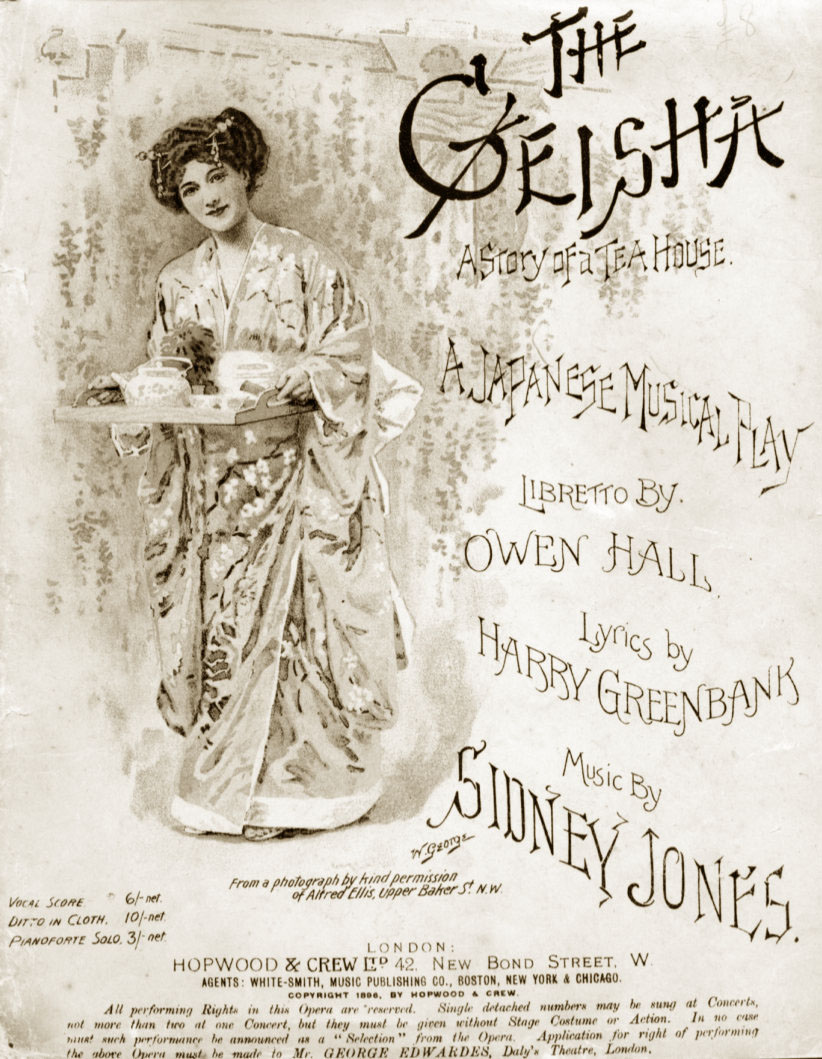 £8
THE
GEISHA
A Story of a TEA HOUSE.
A JAPANESE MUSICAL PLAY
LIBRETTO BY.
OWEN HALL.
Lyrics by
HARRY GREENBANK
Music By
SIDNEY JONES.
W. GEORGE
From a photograph by kind permission
of Alfred Ellis, Upper Baker St. N.W.
VOCAL SCORE 6/- net.
DITTO IN CLOTH, 10/- net.
PIANOFORTE SOLO, 3/- net.
LONDON:
HOPWOOD & CREW LTD 42, NEW BOND STREET, W.
AGENTS: WHITE-SMITH, MUSIC PUBLISHING CO., BOSTON, NEW YORK & CHICAGO.
COPYRIGHT 1896, BY HOPWOOD & CREW.
All performing Rights in this Opera are reserved. Single detached numbers may be sung at Concerts,
not more than two at one Concert, but they must be given without Stage Costume or Action. In no case
must such performance be announced as a "Selection" from the Opera. Application for right of performing
the above Opera must be made to Mr. GEORGE EDWARDES, Daly's Theatre, London.